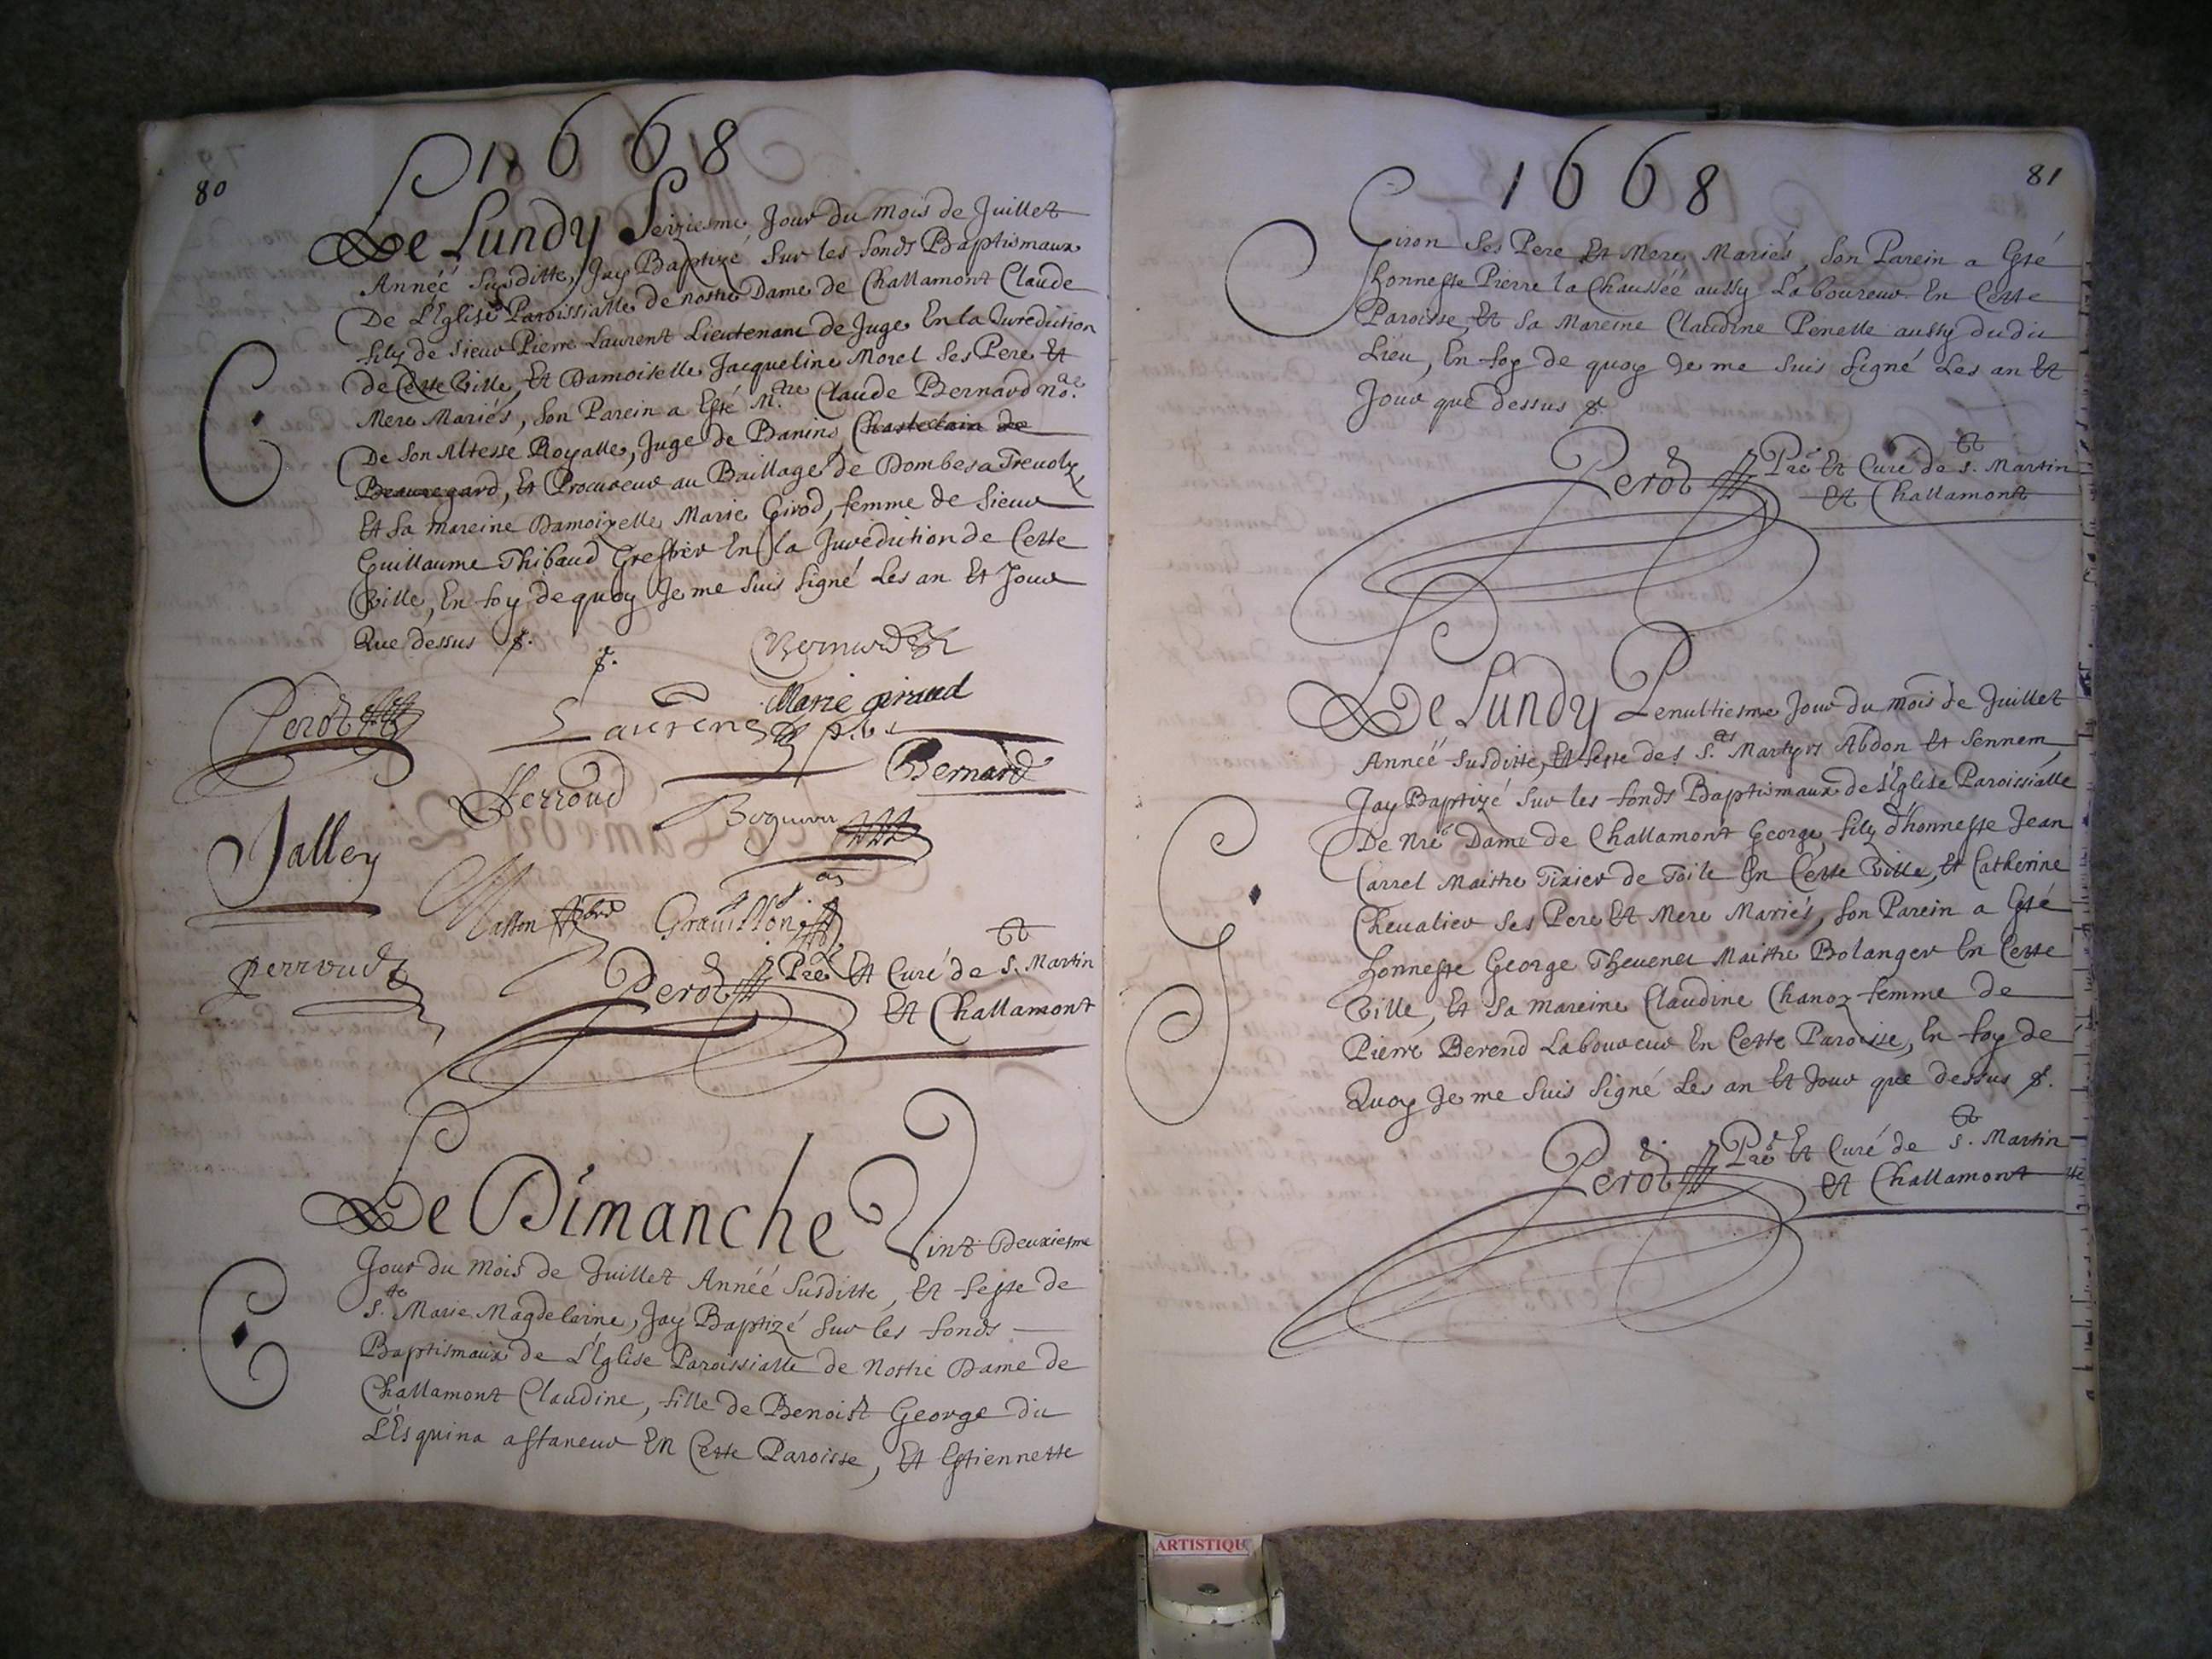 80
1668
Le Lundy Seiziesme Jour du mois de Juillet
Année Susditte, Jay Baptizé Sur les fonds Baptismaux
De L'Eglise Paroissialle de nostre Dame de Challamont Claude
filz de Sieur Pierre Laurent Lieutenant de Juge En la Juredition
de Cette Ville, Et Damoiselle Jacqueline Morel Ses Pere Et
Mere Mariés, Son Parein a Esté M.tre Claude Bernard no.re
De Son Altesse Royalle, Juge de Banins, Chastelain de
Beauregard, Et Procureur au Baillage de Dombes a Trevolz
Et Sa mareine Damoizelle Marie Girod, femme de Sieur
Guillaume Thibaud Greffier En la Juredition de Cette
Ville, En foy de quoy Je me Suis Signé Les an Et Jour
Que dessus
Bernard
Marie giraud
Perod Laurent
Perroud Bernard
Jalley
Masson Grauillon
perroud
Perod Pre Et Curé de S.t Martin
Et Challamont
Le Dimanche Vint Deuxiesme
Jour du Mois de Juillet Année Susditte, Et feste de
S.te Marie Magdelaine, Jay Baptizé Sur les fonds
Baptismaux de L'Eglise Paroissialle de Nostre Dame de
Challamont Claudine, fille de Benoist George du
L'Esquina affaneur En Cette Paroisse, Et Estiennette
81
1668
Giron Ses Pere Et Mere Mariés, Son Parein a Esté
honneste Pierre la Chaussée aussy Laboureur En Cette
Paroisse, Et Sa Mareine Claudine Penelle aussy dudit
Lieu, En foy de quoy Je me Suis Signé Les an Et
Jour que dessus
Perod Pre Et Curé de S.t Martin
Et Challamont
Le Lundy Penultiesme Jour du mois de Juillet
Année Susditte, Et feste des S.ts Martyrs Abdon Et Sennem
Jay Baptizé Sur les fonds Baptismaux de L'Eglise Paroissialle
De Nre Dame de Challamont George, filz d'honneste Jean
Carrel Maitre Tixier de Toile En Cette Ville, Et Catherine
Chevalier Ses Pere Et Mere Mariés, Son Parein a Esté
honneste George Thevenet Maitre Bolanger En Cette
Ville, Et Sa Mareine Claudine Chanoz femme de
Pierre Berend Laboureur En Cette Paroisse, En foy de
Quoy Je me Suis Signé Les an Et Jour que dessus
Perod Pre Et Curé de S.t Martin
Et Challamont
ARTISTIQU